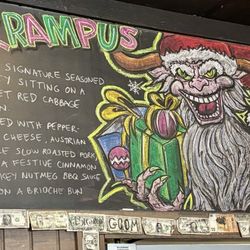 KRAMPUS
SIGNATURE SEASONED
SITTING ON A
RED CABBAGE
WITH PEPPER-
CHEESE, AUSTRIAN
SLOW ROASTED PORK
A FESTIVE CINNAMON
NUTMEG BBQ SAUCE
ON A BRIOCHE BUN
GOOM